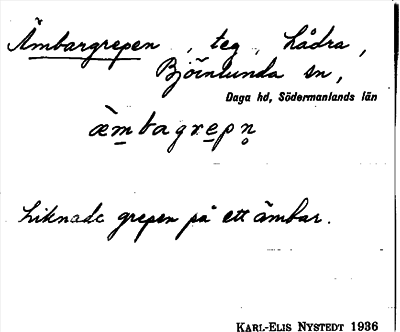 Ämbargrepen, teg, Lådra,
Björnlunda sn,
Daga hd, Södermanlands län
æ̀mbagrepn̥
Liknade grepen på ett ämbar.
KARL-ELIS NYSTEDT 1936